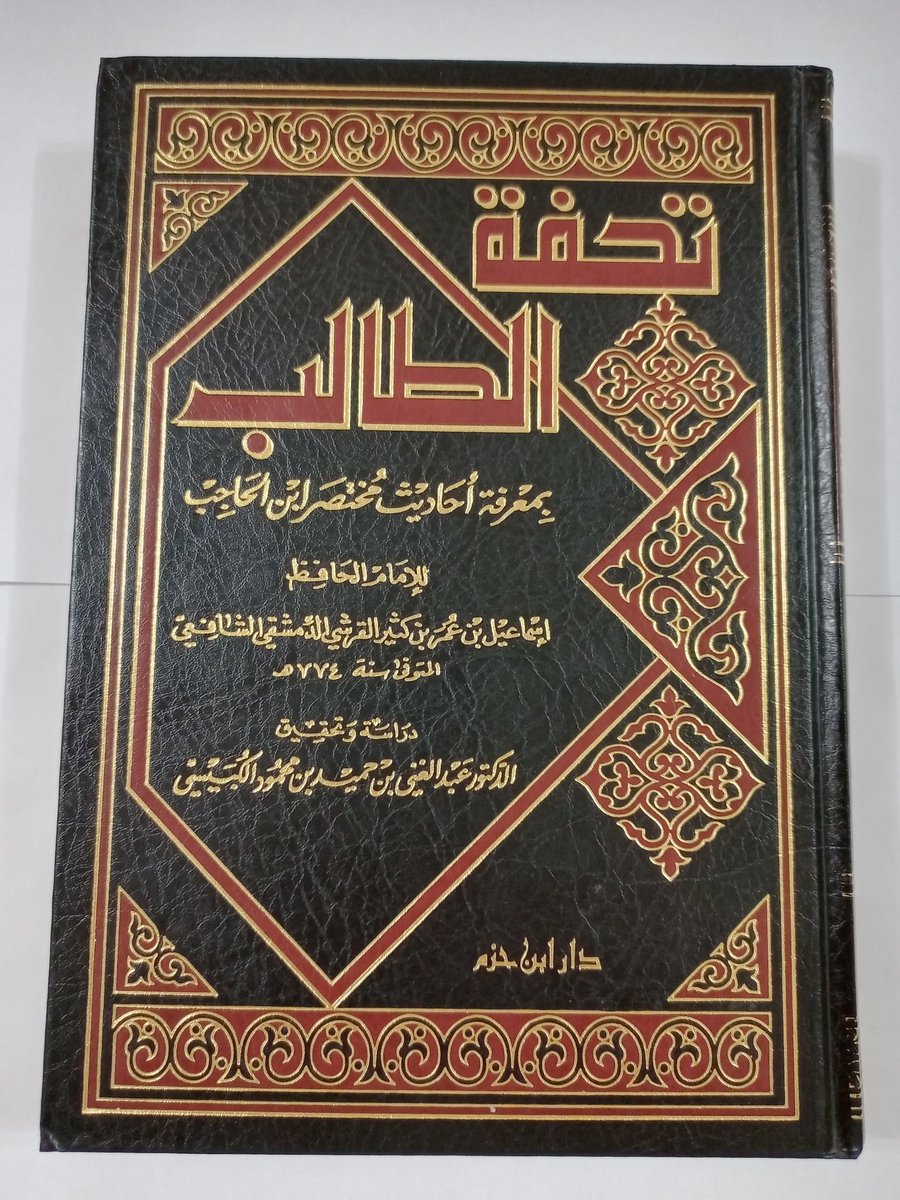 تحفة
الطالب
بِمَعْرِفَة أحَاديْث مُختصَر ابْن الحَاجِبْ
للإمَام الحَافِظ
إسْمَاعيل بْن عُمَر بن كثير القرشي الدّمشقي الشافعيّ
المتوفى سنة ٧٧٤ هـ
دراسَة وَتحقيق
الدكتور عَبْد الغني بْن حميد بن محمود الكبَيسِي
دار ابن حزم